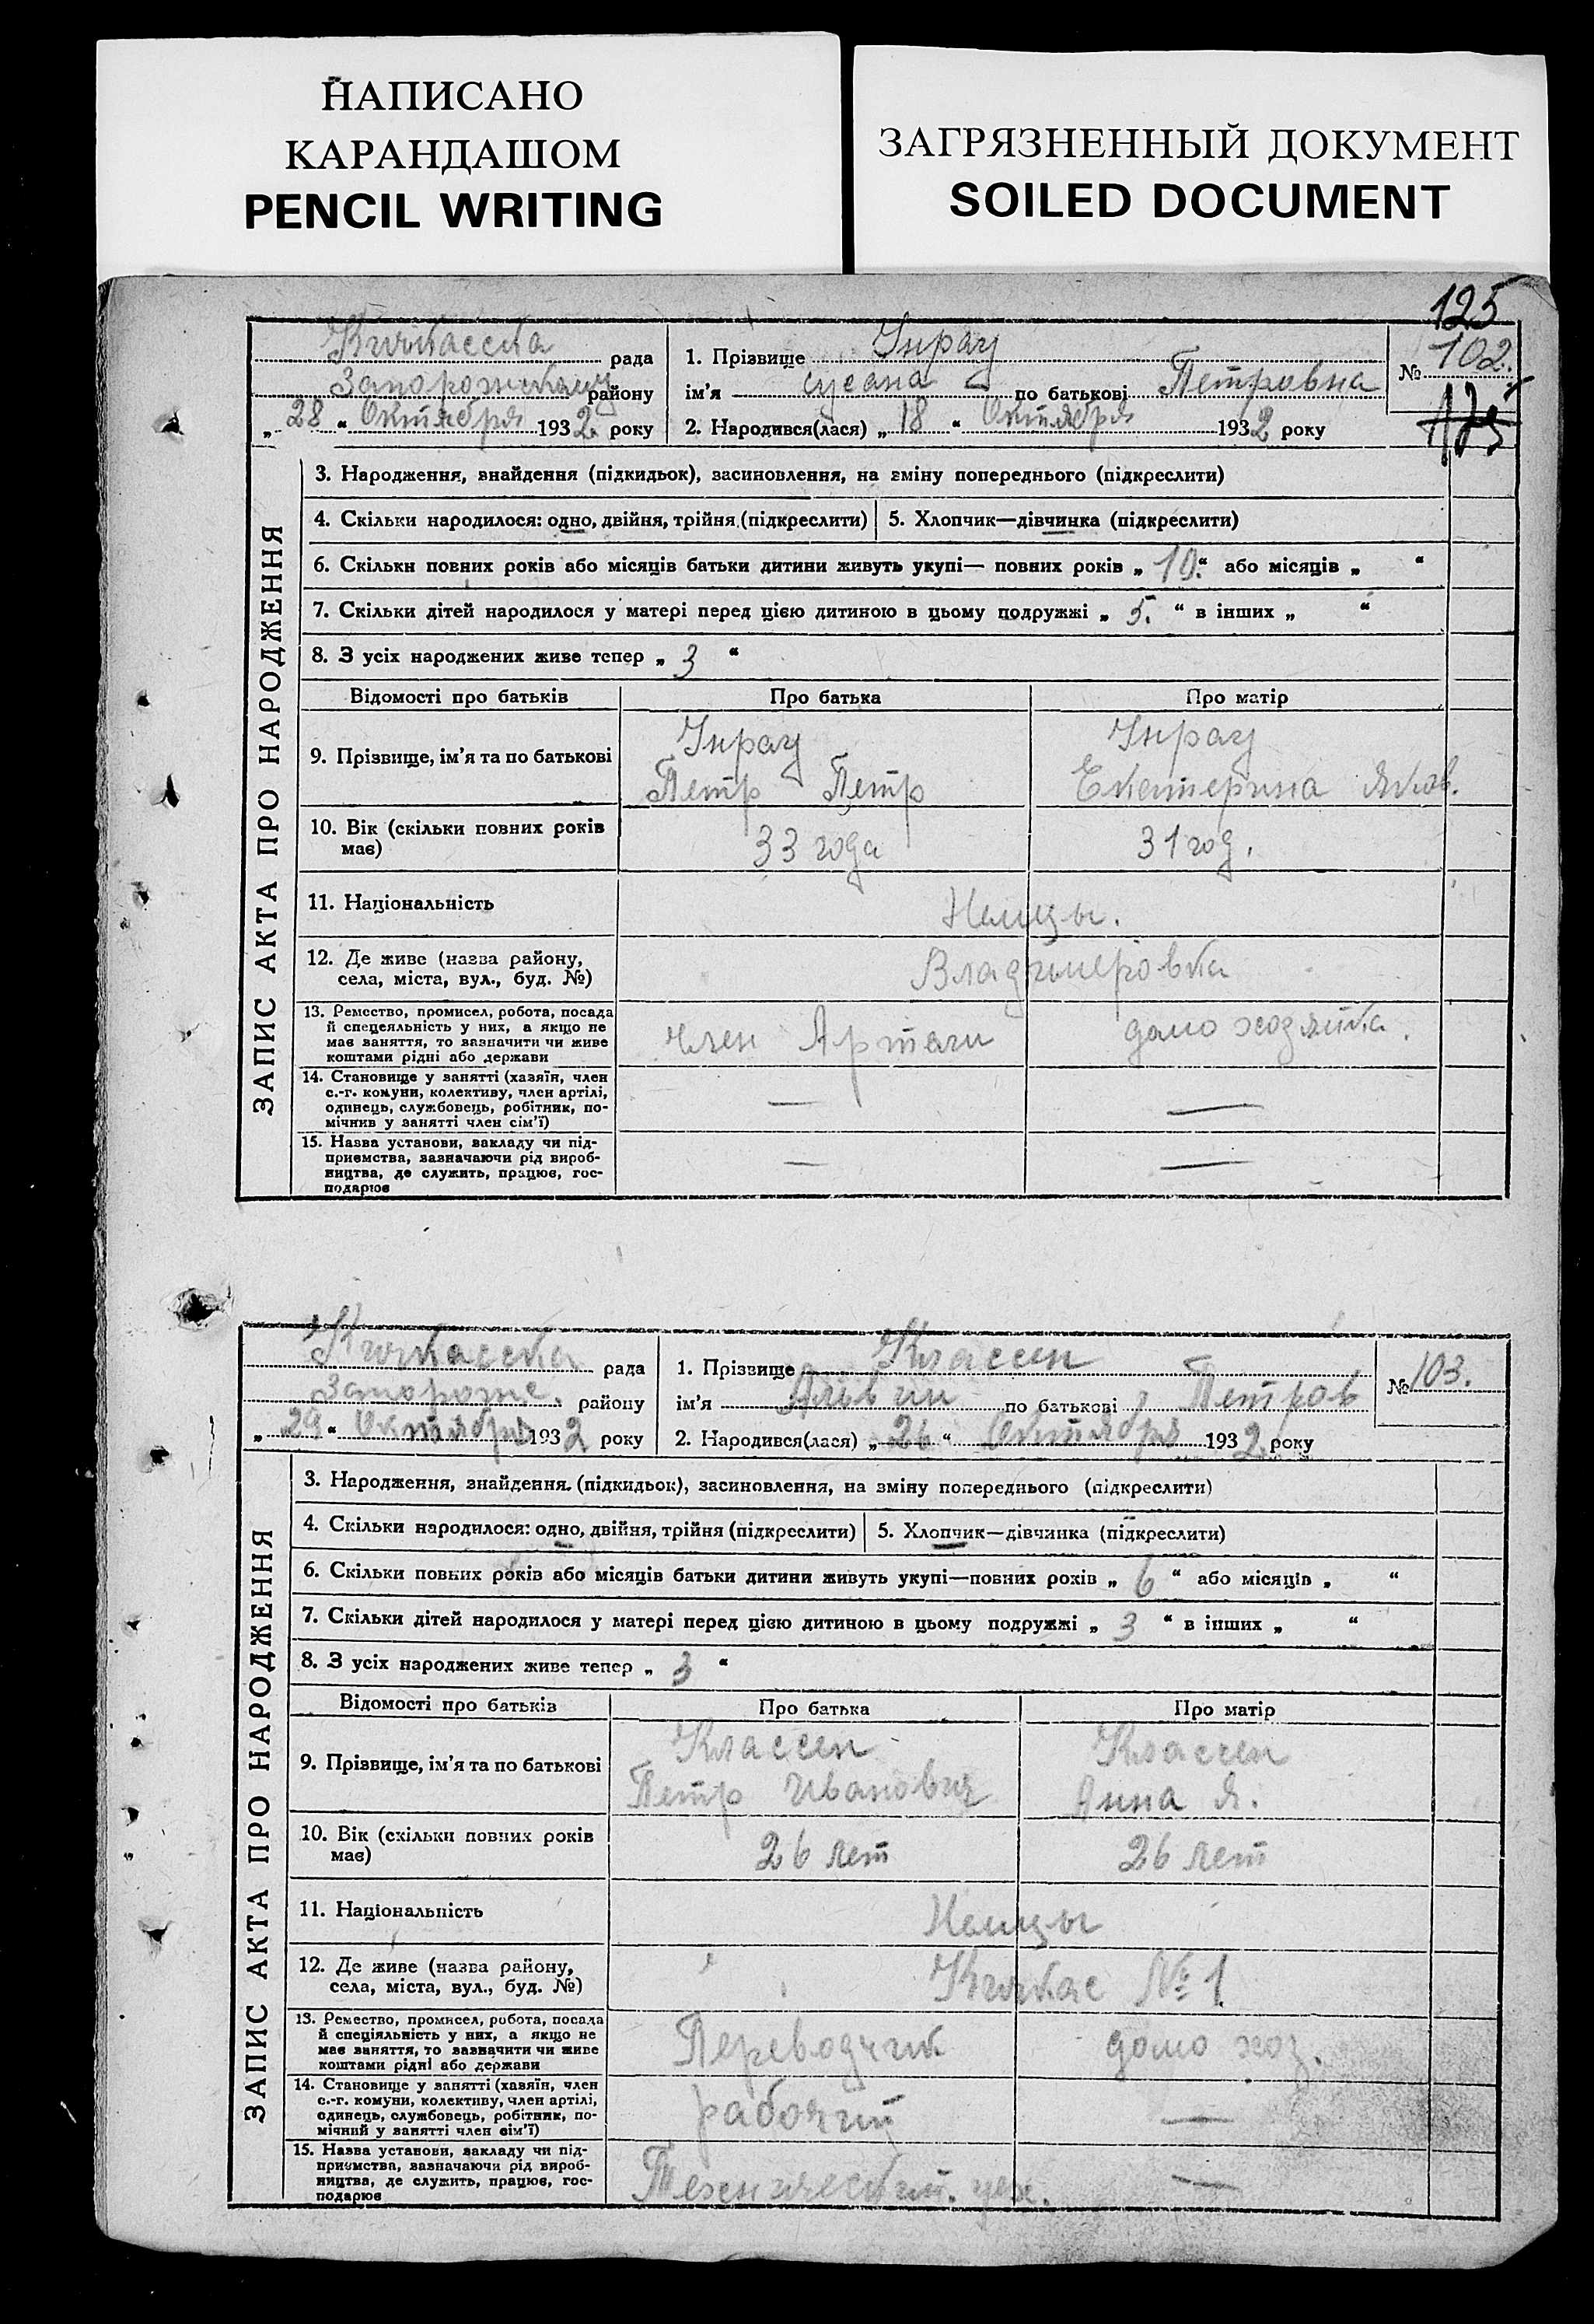 НАПИСАНО
КАРАНДАШОМ
PENCIL WRITING
ЗАГРЯЗНЕННЫЙ ДОКУМЕНТ
SOILED DOCUMENT
125
Кичкасска рада
районy
„ 28 “ Октября 1932 року
1. Прізвище
ім’я Сусана по батькові Петровна
2. Народився(лася) „ 18 “ Октября 1932 року
№ 102.
125
ЗАПИС АКТА ПРО НАРОДЖЕННЯ
3. Народження, знайдення (підкидьок), засиновлення, на зміну попереднього (підкреслити)
4. Скільки народилося: одно, двійня, трійня (підкреслити) 5. Хлопчик—дівчинка (підкреслити)
6. Скільки повних років або місяців батьки дитини живуть укупі— повних років „ 10. “ або місяців „ “
7. Скільки дітей народилося у матері перед цією дитиною в цьому подружжі „ 5. “ в інших „ “
8. З усіх народжених живе тепер „ 3 “
Відомості про батьків Про батька Про матір
9. Прізвище, ім’я та по батькові
Петр Петр Екатерина Яков.
10. Вік (скільки повних років має) 33 года 31 год.
11. Національність Немцы.
12. Де живе (назва району,
села, міста, вул., буд. №) Владимировка
13. Ремество, промисел, робота, посада
й спецеяльність у них, а якщо не
має заняття, то зазначити чи живе
коштами рідні або держави
член Артели домохозяйка.
14. Становище у занятті (хазяїн, член
с.-г. комуни, колективу, член артілі,
одинець, службовець, робітник, по-
мічник у занятті член сім’ї)
— —
15. Назва установи, закладу чи під-
приємства, зазначаючи рід вироб-
ництва, де служить, працює, гос-
подарює
— —
Кичкасска рада
Запорож. району
„ 29 “ Октября 1932 року
1. Прізвище Классен
ім’я Альвин по батькові Петров
2. Народився(лася) „ 26 “ Октября 1932 року
№ 103.
ЗАПИС АКТА ПРО НАРОДЖЕННЯ
3. Народження, знайдення. (підкидьок), засиновлення, на зміну попереднього (підкреслити)
4. Скільки народилося: одно, двійня, трійня (підкреслити) 5. Хлопчик—дівчинка (підкреслити)
6. Скільки повних років або місяців батьки дитини живуть укупі—повних рохів „ 6 “ або місяців „ “
7. Скільки дітей народилося у матері перед цією дитиною в цьому подружжі „ 3 “ в інших „ “
8. З усіх народжених живе тепер „ 3 “
Відомості про батьків Про батька Про матір
9. Прізвище, ім’я та по батькові Классен Классен
Петр Иванович Анна Я.
10. Вік (скільки повних років
має) 26 лет 26 лет
11. Національність Немцы
12. Де живе (назва району,
села, міста, вул., буд. №) Кичкас № 1
13. Ремество, промисел, робота, посада
й спеціяльність у них, а якщо не
має заняття, то зазначити чи живе
коштами рідні або держави
Переводчик домохоз.
14. Становище у занятті (хазяїн, член
с.-г. комуни, колективу, член артілі,
одинець, службовець, робітник, по-
мічний у занятті член сім’ї)
рабочий —
15. Назва установи, закладу чи під-
приємства, зазначаючи рід вироб-
ництва, де служить, працює, гос-
подарює
Технический. цех. —